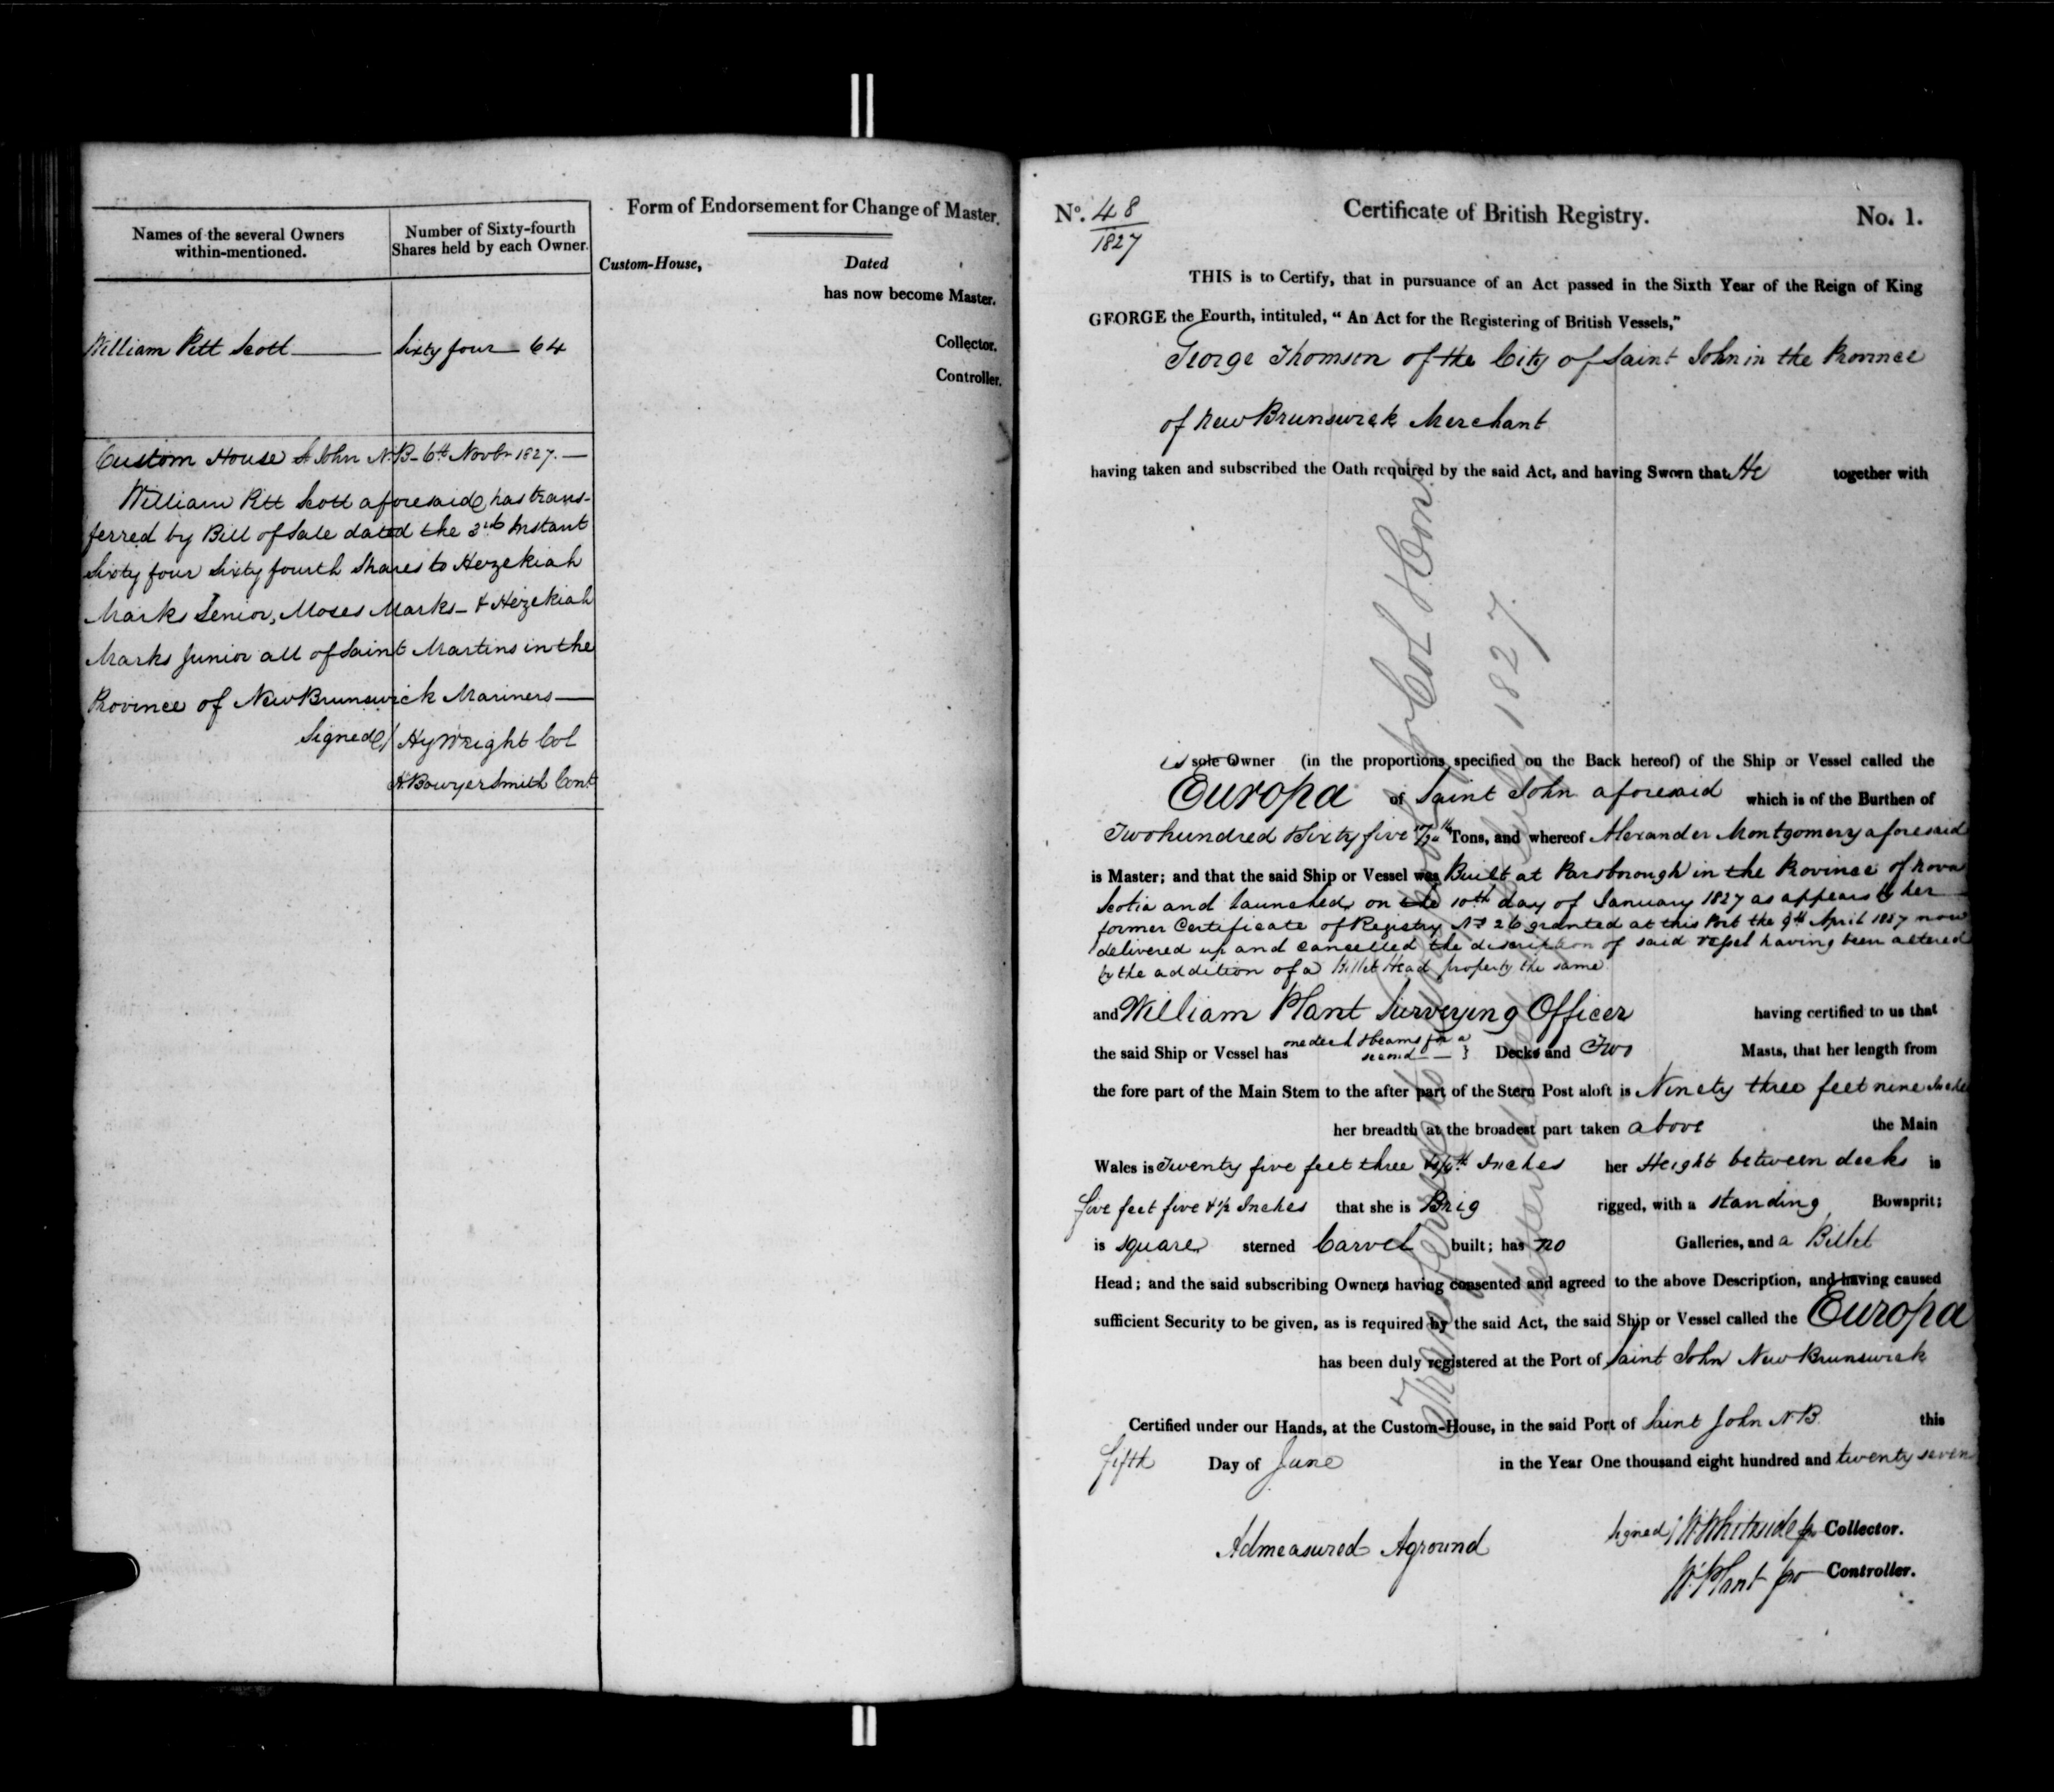 Names of the several Owners
within-mentioned.
Number of Sixty-fourth
Shares held by each Owner.
William Pitt Scott
Sixty four 64
Custom House St John N.B. 6th Novbr 1827.
William Pitt Scott aforesaid has trans-
ferred by Bill of Sale dated the 3rd Instant
Sixty four Sixty fourth Shares to Hezekiah
Marks Senior, Moses Marks & Hezekiah
Marks Junior all of Saint Martins in the
Province of New Brunswick Mariners
Signed/ Hy Wright Col
H. Bowyer Smith Cont
Form of Endorsement for Change of Master.
Custom-House, Dated
has now become Master.
Collector.
Controller.
No. 48 Certificate of British Registry. No. 1.
1827
THIS is to Certify, that in pursuance of an Act passed in the Sixth Year of the Reign of King
GEORGE the Fourth, intituled, "An Act for the Registering of British Vessels,"
George Thomson of the City of Saint John in the Province
of New Brunswick Merchant
having taken and subscribed the Oath required by the said Act, and having Sworn that He together with
is sole Owner (in the proportions specified on the Back hereof) of the Ship or Vessel called the
Europa of Saint John aforesaid which is of the Burthen of
Two hundred & Sixty five Tons, and whereof Alexander Montgomery aforesaid
is Master; and that the said Ship or Vessel was Built at Parsborough in the Province of Nova
Scotia and launched on the 10th day of January 1827 as appears by her
former Certificate of Registry No 26 granted at this Port the 9th April 1827 now
delivered up and cancelled the description of said vessel having been altered
by the addition of a Billet Head property the same
and William Plant Surveying Officer having certified to us that
the said Ship or Vessel has one deck & beams for a second Decks and Two Masts, that her length from
the fore part of the Main Stem to the after part of the Stern Post aloft is Ninety three feet nine Inches
her breadth at the broadest part taken above the Main
Wales is Twenty five feet three Inches her Height between decks is
five feet five & 1/2 Inches that she is Brig rigged, with a standing Bowsprit;
is square sterned Carvel built; has no Galleries, and a Billet
Head; and the said subscribing Owners having consented and agreed to the above Description, and having caused
sufficient Security to be given, as is required by the said Act, the said Ship or Vessel called the Europa
has been duly registered at the Port of Saint John New Brunswick
Certified under our Hands, at the Custom-House, in the said Port of Saint John N.B. this
fifth Day of June in the Year One thousand eight hundred and twenty seven
Admeasured Aground
Signed/ W Whiteside pro Collector.
W. Plant pro Controller.
1827.